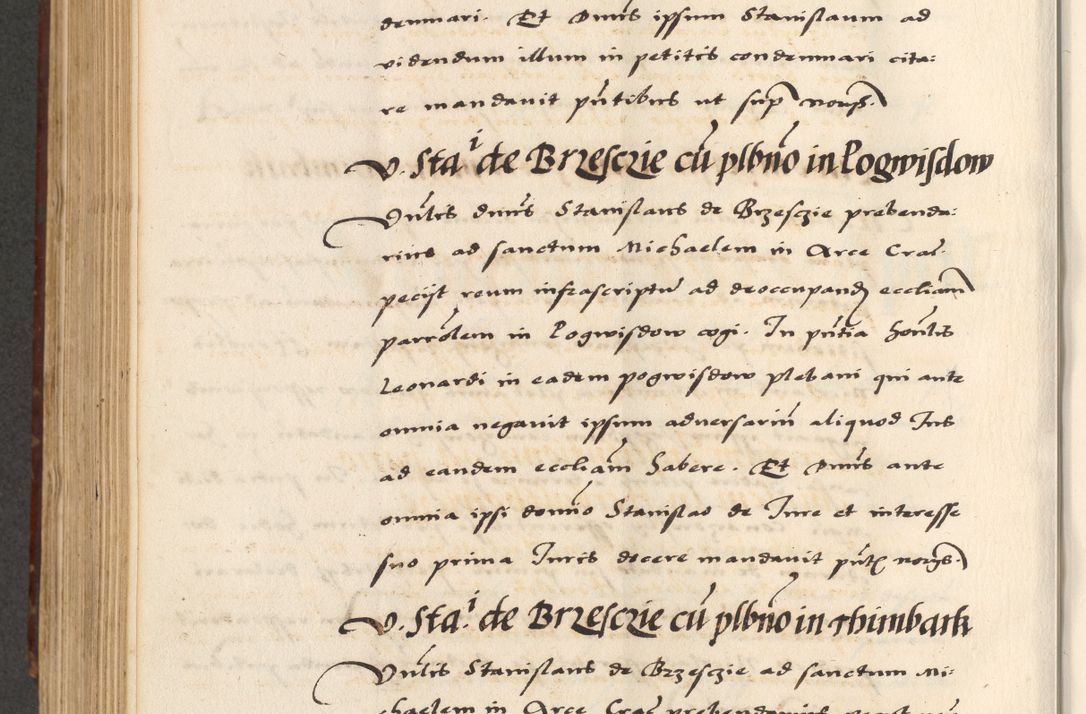 demnari. Et Dnūs ipsum Stanislaum ad
videndum illum in petitis condemnari cita:
re mandavit pn̄tibus ut sup̄
D. Sta.i de Brzesczie cū plbn̄o in Pogwisdow
Vn̄lis dnūs Stanislaus de Brzesczie prebenda:
rius ad sanctum Michaelem in Arce Crac̄.
pecijt reum infrascriptū ad deoccupand ecclīam
parrōlem in Pogwisdow cogi. In pn̄tia hon̄lis
Leonardi in eadem pogwisdow plebani qui ante
omnia negavit ipsum adversariū aliquod Ius
ad eandem ecclīam habere. Et Dnūs ante
omnia ipsi domn̄o Stanislao de Iure et interesse
suo prima Iuris docere mandavit pn̄t
D. Sta.i de Brzesczie cū plbn̄o in Thimbark
Vn̄lis Stanislaus de Brzesczie ad sanctum Mi:
chaelem in Arce Crac̄ prebendarius